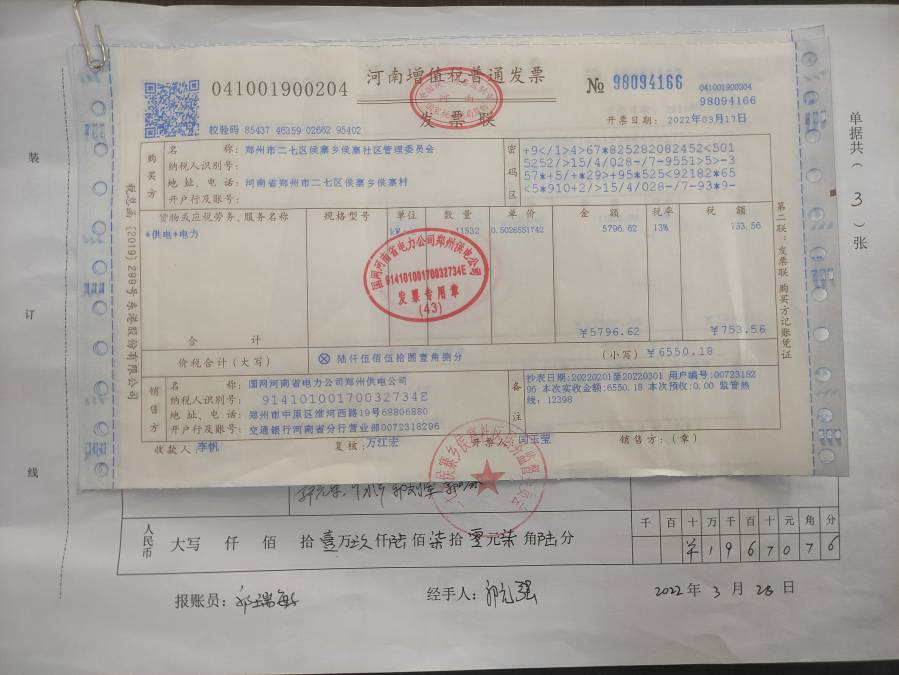 河南增值税普通发票
041001900204
№ 98094166
041001900204
98094166
发票联
校验码 85437 46359 02662 95402
开票日期: 2022年03月17日
购买方
名称: 郑州市二七区侯寨乡侯寨社区管理委员会
纳税人识别号:
地址、电话: 河南省郑州市二七区侯寨乡侯寨村
开户行及账号:
密码区
+9</1>4>67*825282082452<501
5252/>15/4/028-/7-9551>5>-3
57*+5/+*29>+95*525<92182*65
<5*910+2/>15/4/028-/7-93*9-
货物或应税劳务、服务名称 规格型号 单位 数量 单价 金额 税率 税额
*供电*电力 11532 0.5026551742 5796.62 13% 753.56
国网河南省电力公司郑州供电公司
91410100170032734E
发票专用章
(43)
合计 ¥5796.62 ¥753.56
价税合计(大写) ⊗ 陆仟伍佰伍拾圆壹角捌分 (小写) ¥6550.18
销售方
名称: 国网河南省电力公司郑州供电公司
纳税人识别号: 91410100170032734E
地址、电话: 郑州市中原区淮河西路19号68806880
开户行及账号: 交通银行河南省分行营业部0072318296
备注
抄表日期:20220201至20220301 用户编号:00723182
96 本次实收金额:6550.18 本次预收:0.00 监管热
线: 12398
收款人: 李帆 复核: 万江宏 开票人: 闫玉莹 销售方:(章)
税总函[2019]299号 东港股份有限公司
第二联:发票联 购买方记账凭证
单据共(3)张
装
订
线
千 百 十 万 千 百 十 元 角 分
人民币 大写 仟 佰 拾 壹万玖仟陆佰柒拾零元柒角陆分
¥ 1 9 6 7 0 7 6
报账员: 经手人: 2022年 3月 28日